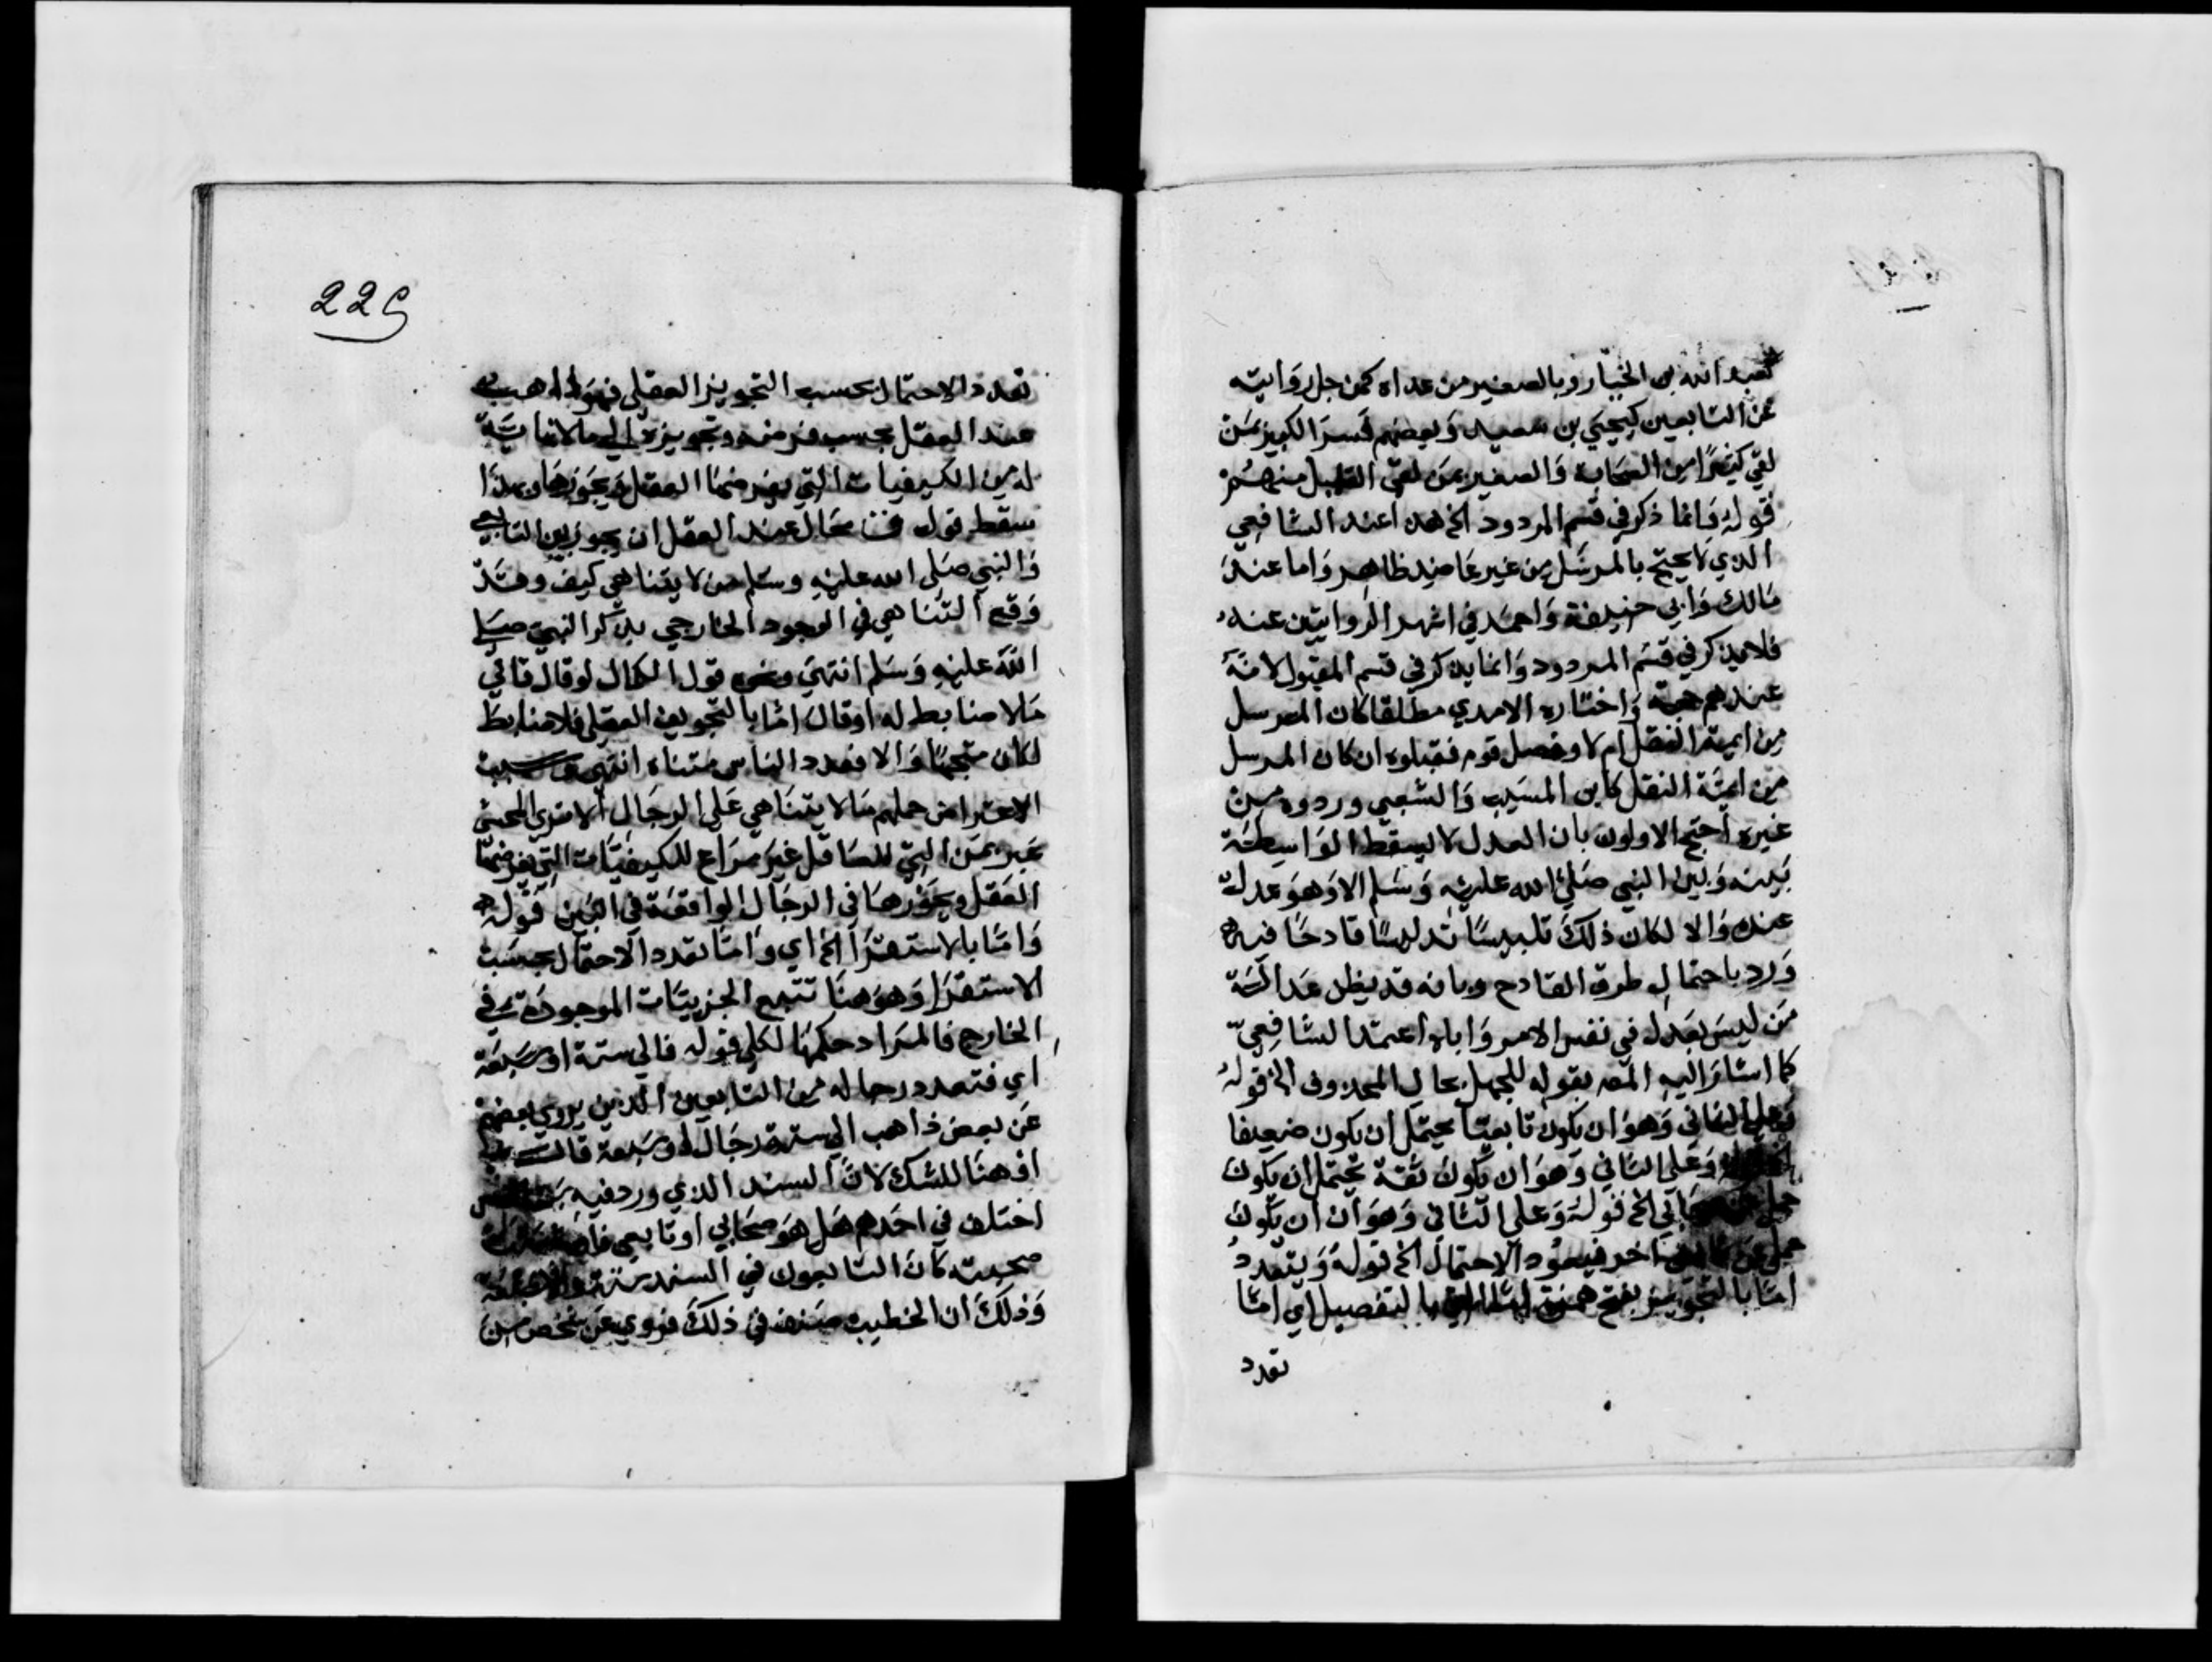 كعبد الله بن الخيار وبالصغير من عداه كمن جل روايته
عن التابعين كيحيي بن سعيد وبعضهم فسر الكبير بمن
لقي كثيرا من الصحابة والصغير بمن لقي القليل منهم
قوله وانما ذكر في قسم المردود الخ هذا عند الشافعي
الذي لا يحتج بالمرسل من غير عاضد ظاهر واما عند
مالك وابي حنيفة واحمد في اشهر الروايتين عنه
فلا يذكر في قسم المردود وانما يذكر في قسم المقبول لانه
عندهم حجة واختاره الامدي مطلقا كان المرسل
من ايمة النقل ام لا وفصل قوم فقبلوه ان كان المرسل
من ايمة النقل كابن المسيب والشعبي وردوه من
غيره احتج الاولون بان العدل لا يسقط الواسطة
بينه وبين النبي صلي الله عليه وسلم الا وهو عدل
عنده والا لكان ذلك تلبيسا تدليسا قادحا فيه
ورد باحتمال طرق القادح وبانه قد يظن عدالة
من ليس بعدل في نفس الامر واياه اعتمد الشافعي
كما اشار اليه المص بقوله للجهل بحال المحذوف الخ قوله
وعلي الثاني وهو ان يكون تابعيا يحتمل ان يكون ضعيفا
وعلي الثاني وهو ان يكون ثقة يحتمل ان يكون
حمل عن الخ قوله وعلي الثاني وهو ان ان يكون
حمل عن اخر فيعود الاحتمال الخ قوله ويتعدد
اما بالتجويز بفتح همزة بالتفصيل اي اما
تعدد
229
تعدد الاحتمال بحسب التجويز العقلي فهو ذاهب
عند العقل بحسب فرضه وتجويزه الي ما لا نهاية
له من الكيفيات التي يفرضها العقل ويجوزها وبهذا
سقط قول محال عند العقل ان يجوز بين التابعي
والنبي صلي الله عليه وسلم من لا يتناهي كيف وقد
وقع التناهي في الوجود الخارجي بذكر النبي صلي
الله عليه وسلم انتهي ونحوه قول الكمال لو قال قائي
ما لا ضابط له او قال اما بالتجويز العقلي فلا ضابط
لكان متجها والا فعدد الناس متناه انتهي وسبب
الاعتراض حملهم ما لا يتناهي علي الرجال الا تري المحشي
عبر بمن التي للعاقل غير مراع للكيفيات التي يفرضها
العقل ويجوزها في الرجال الواقعة في البين قوله
واما بالاستقرا الخ اي واما تعدد الاحتمال بحسب
الاستقرا وهو هنا تتبع الجزييات الموجودة في
الخارج فالمراد حكمها لكلي قوله فالي ستة او سبعة
اي فتعدد رجاله من التابعين الذين يروي بعضهم
عن بعض ذاهب الي ستة رجال او سبعة قال
او هنا للشك لان السند الذي ورد فيه
اختلف في احدهم هل هو صحابي او تابعي فان
صحبته كان التابعون في السند ستة والا
وذلك ان الخطيب صنف في ذلك فروي عن شخص من